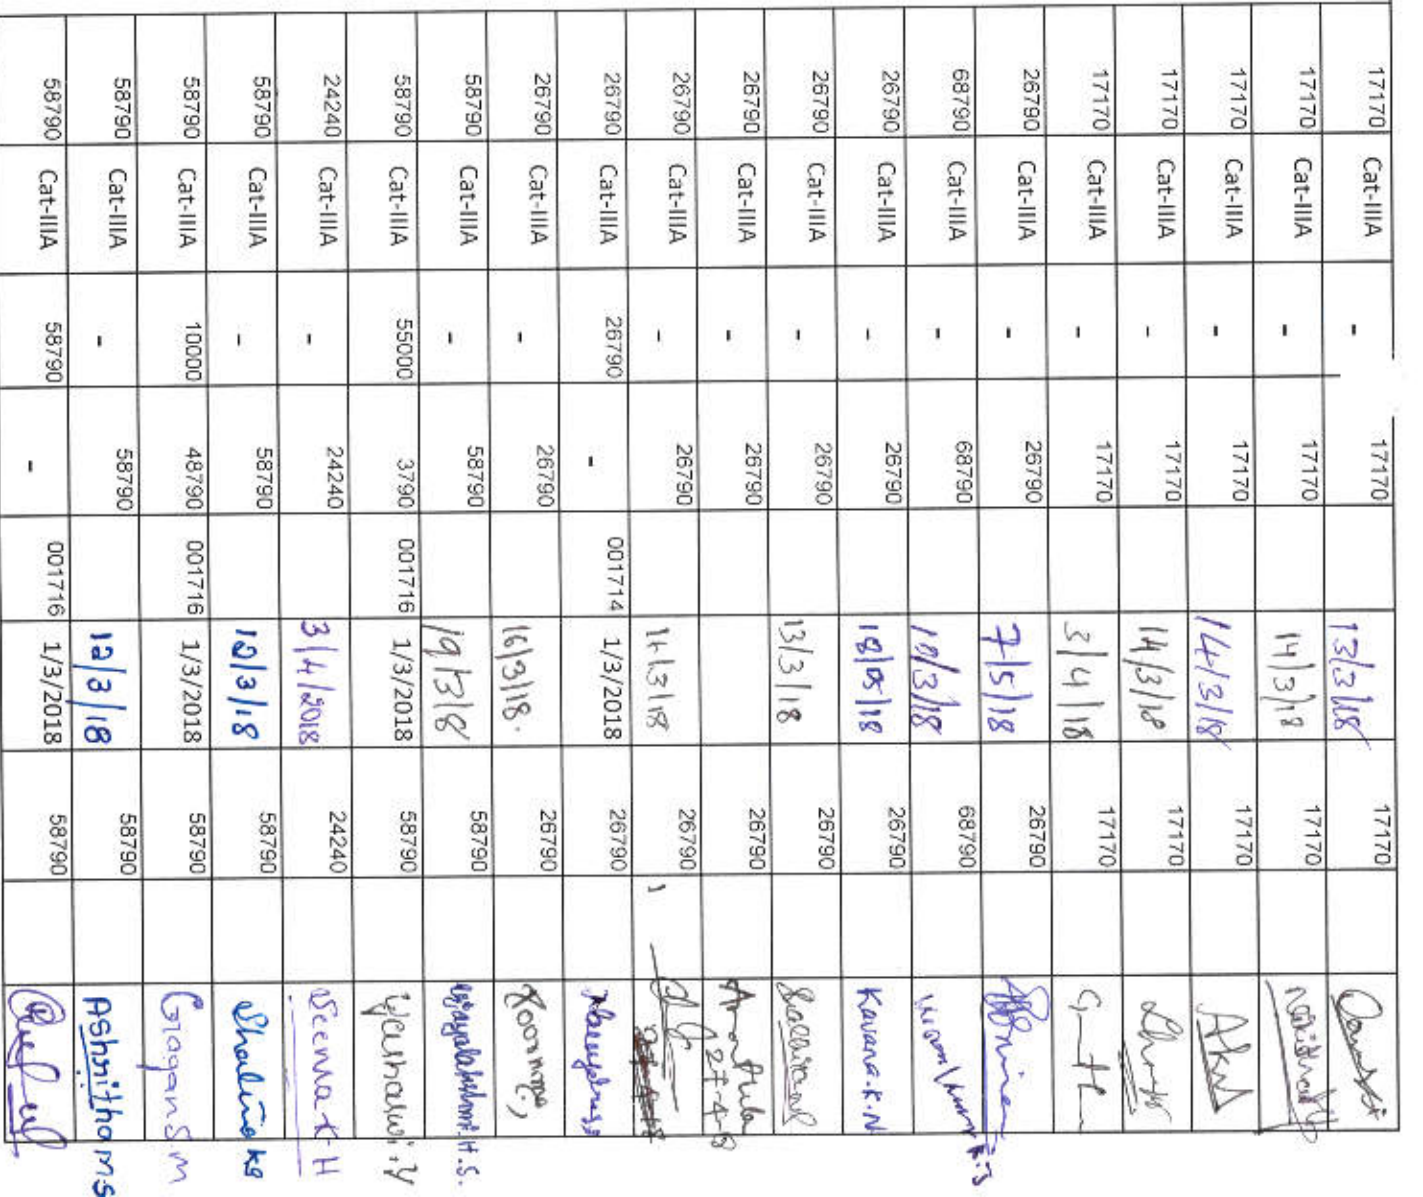 17170 Cat-IIIA - 17170 13/3/18 17170
17170 Cat-IIIA - 17170 14/3/18 17170
17170 Cat-IIIA - 17170 14/3/18 17170
17170 Cat-IIIA - 17170 14/3/18 17170
17170 Cat-IIIA - 17170 3/4/18 17170
26790 Cat-IIIA - 26790 7/5/18 26790
68790 Cat-IIIA - 68790 68790
26790 Cat-IIIA - 26790 18/05/18 26790 Kavana.K.N
26790 Cat-IIIA - 26790 13/3/18 26790
26790 Cat-IIIA - 26790 26790
26790 Cat-IIIA - 26790 14/3/18 26790
26790 Cat-IIIA 26790 - 001714 1/3/2018 26790
26790 Cat-IIIA - 26790 16/3/18. 26790
58790 Cat-IIIA - 58790 19/3/18 58790 Vijayalakshmi.H.S.
58790 Cat-IIIA 55000 3790 001716 1/3/2018 58790 Yashaswi.Y
24240 Cat-IIIA - 24240 3/4/2018 24240 Veena K H
58790 Cat-IIIA - 58790 12/3/18 58790
58790 Cat-IIIA 10000 48790 001716 1/3/2018 58790 Gagan S.M
58790 Cat-IIIA - 58790 12/3/18 58790 Ashritha M S
58790 Cat-IIIA 58790 - 001716 1/3/2018 58790